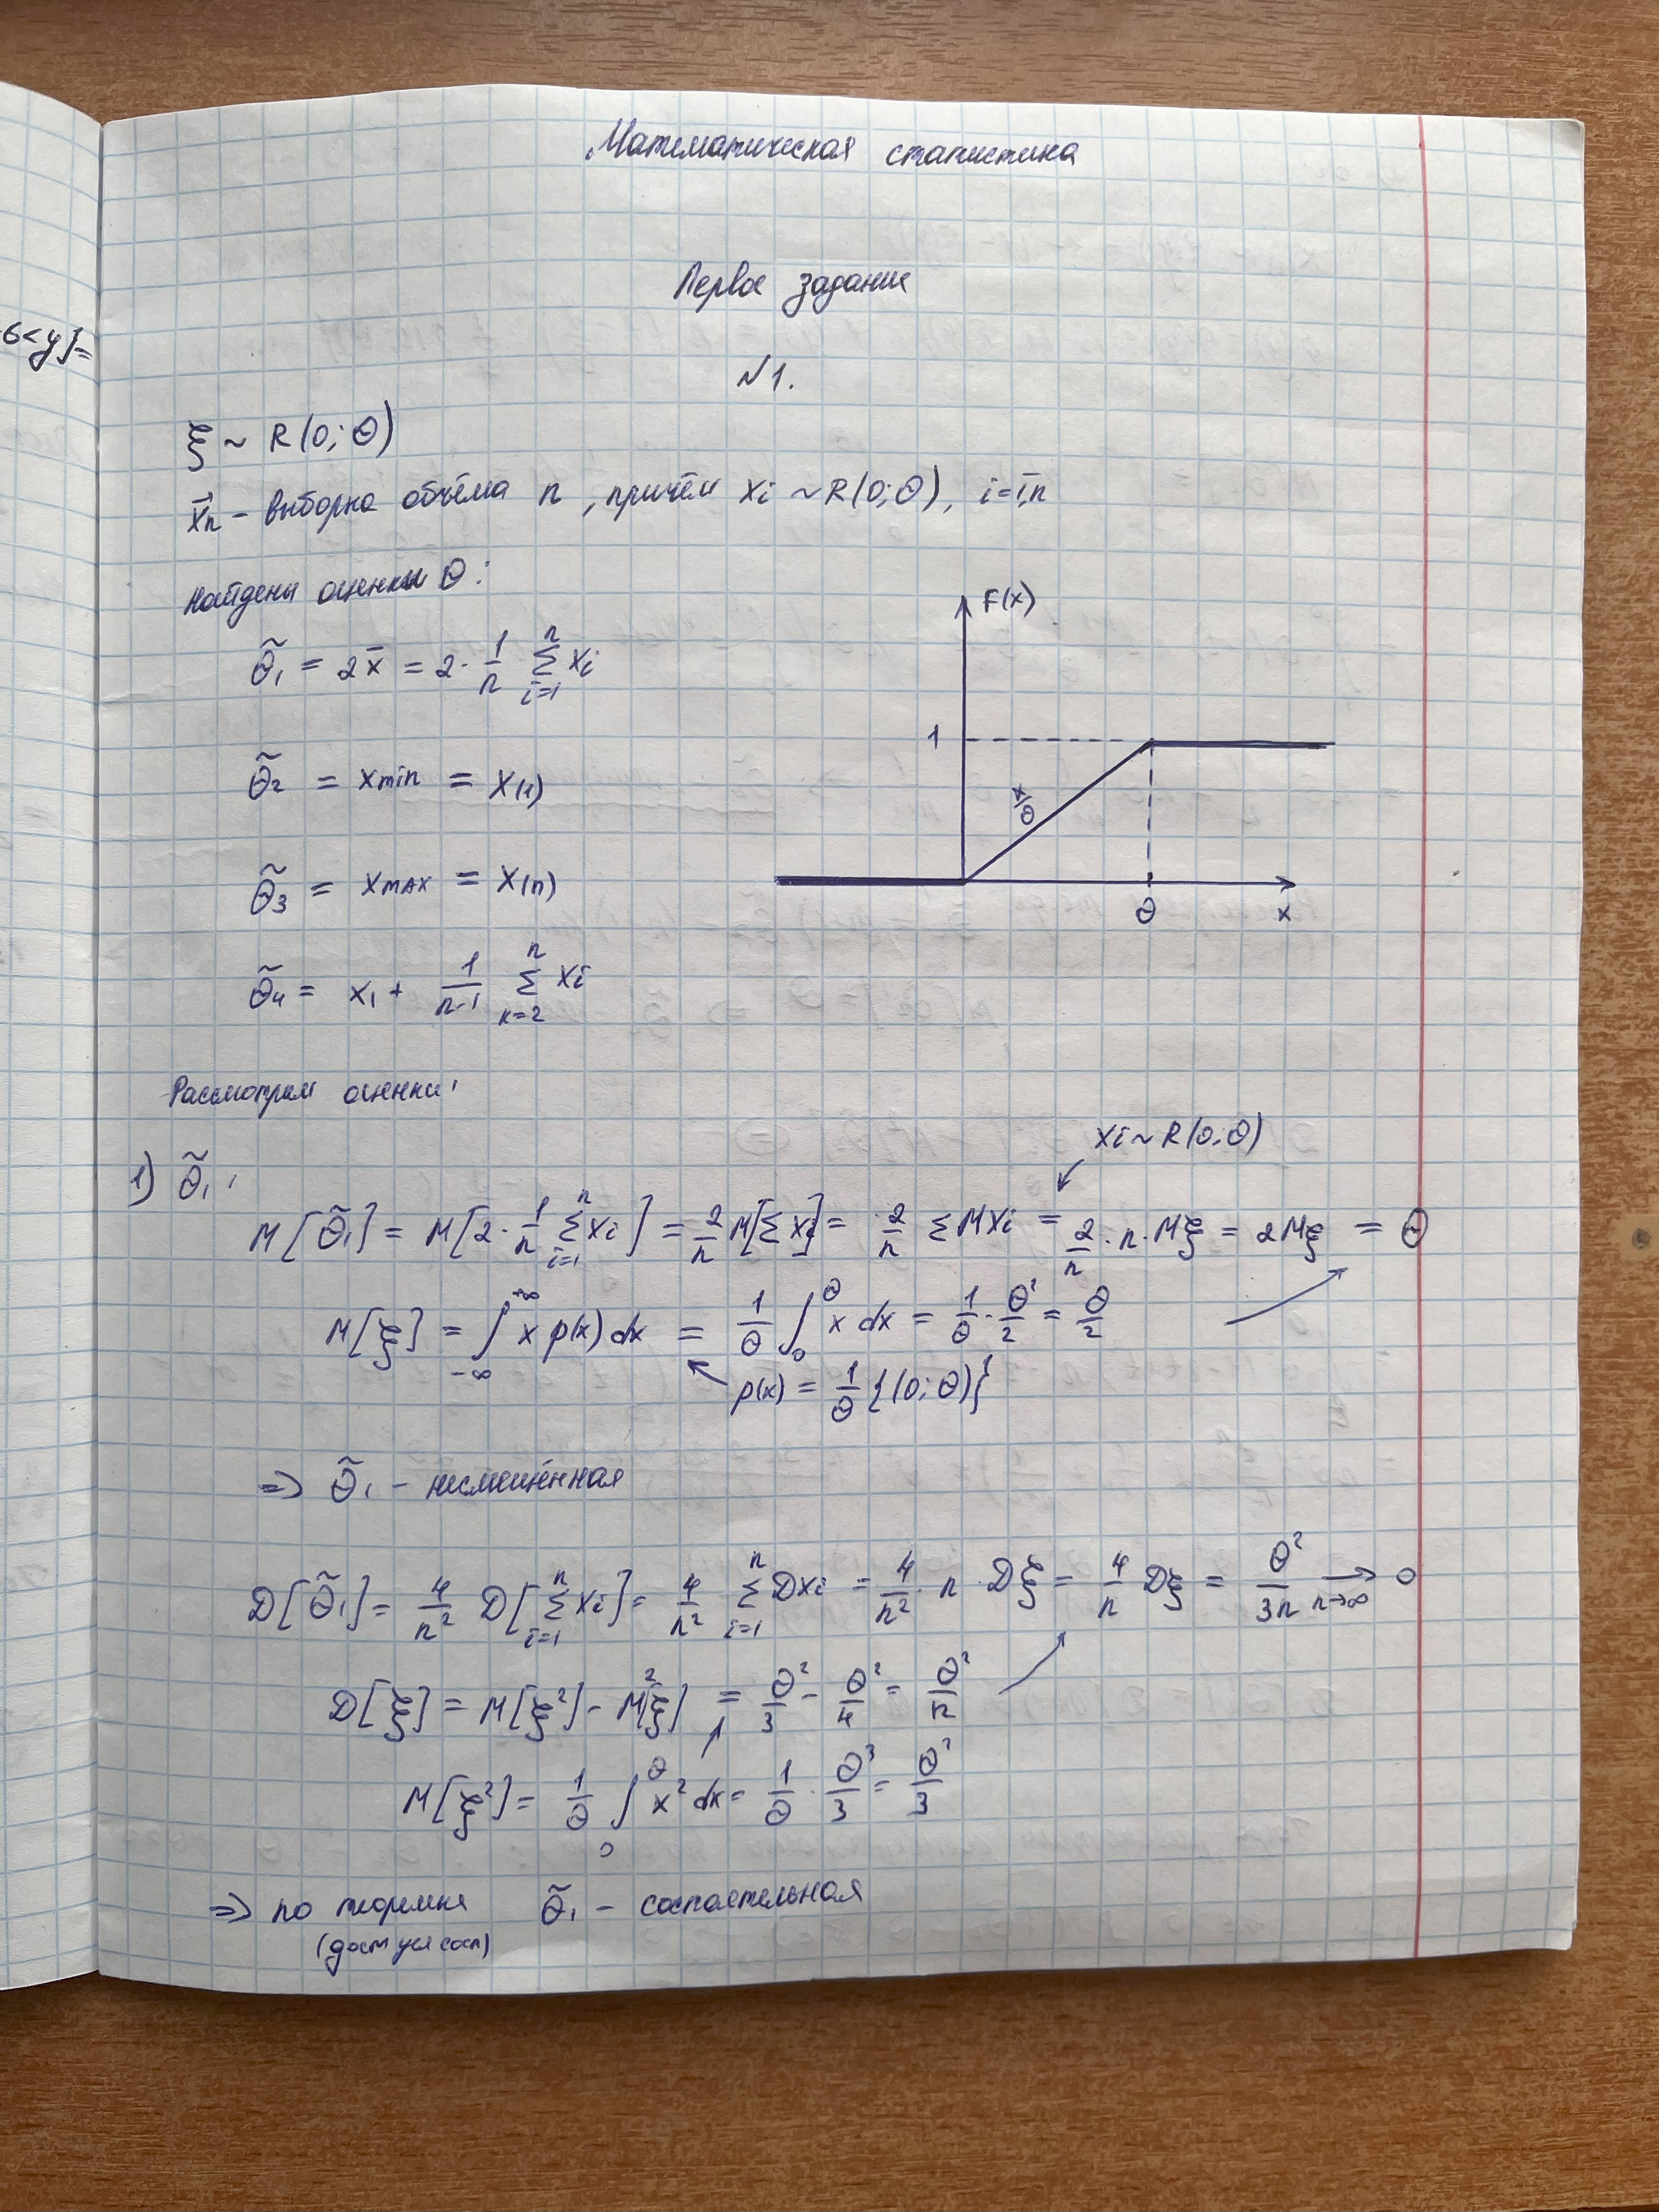 Математическая статистика
Первое задание
6<y]=
№1.
ξ ~ R(0; θ)
x⃗n - выборка объёма n, причём xi ~ R(0; θ), i=1,n
Найдены оценки θ:
θ̃₁ = 2x̄ = 2 · 1/n Σ_{i=1}^{n} xi
θ̃₂ = xmin = x(1)
θ̃₃ = xмах = x(n)
θ̃₄ = x₁ + 1/(n-1) Σ_{k=2}^{n} xi
F(x)
1
x/θ
θ
x
Рассмотрим оценки:
xi ~ R(0; θ)
1) θ̃₁:
M[θ̃₁] = M[2 · 1/n Σ_{i=1}^{n} xi] = 2/n M[Σ xi] = 2/n Σ M xi = 2/n · n · Mξ = 2Mξ = θ
M[ξ] = ∫_{-∞}^{+∞} x p(x) dx = 1/θ ∫_0^θ x dx = 1/θ · θ²/2 = θ/2
p(x) = 1/θ {(0; θ)}
=> θ̃₁ - несмещённая
D[θ̃₁] = 4/n² D[Σ_{i=1}^{n} xi] = 4/n² Σ_{i=1}^{n} D xi = 4/n² · n · Dξ = 4/n Dξ = θ²/3n →_{n→∞} 0
D[ξ] = M[ξ²] - M²[ξ] = θ²/3 - θ²/4 = θ²/12
M[ξ²] = 1/θ ∫_0^θ x² dx = 1/θ · θ³/3 = θ²/3
=> по теореме θ̃₁ - состоятельная
(дост усл сост)